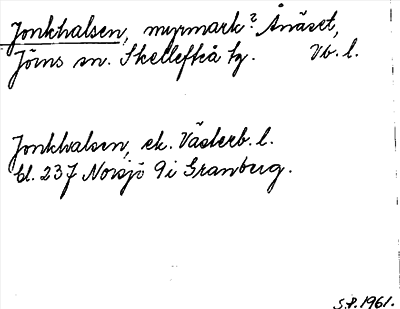 Jonkhalsen, myrmark? Ånäset,
Jörns sn. Skellefteå tg. Vb. l.
Jonkhalsen, ek. Västerb. l.
bl. 237 Norsjö 9i Granberg.
S.P. 1961.